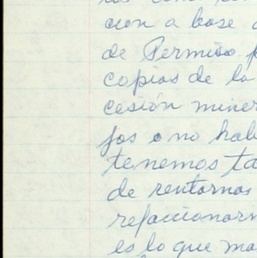 cion a base
de Permiso p
copias de la
cesión miner
jos o no hab
tenemos ta
de rentarnos
refaccionarn
es lo que ma